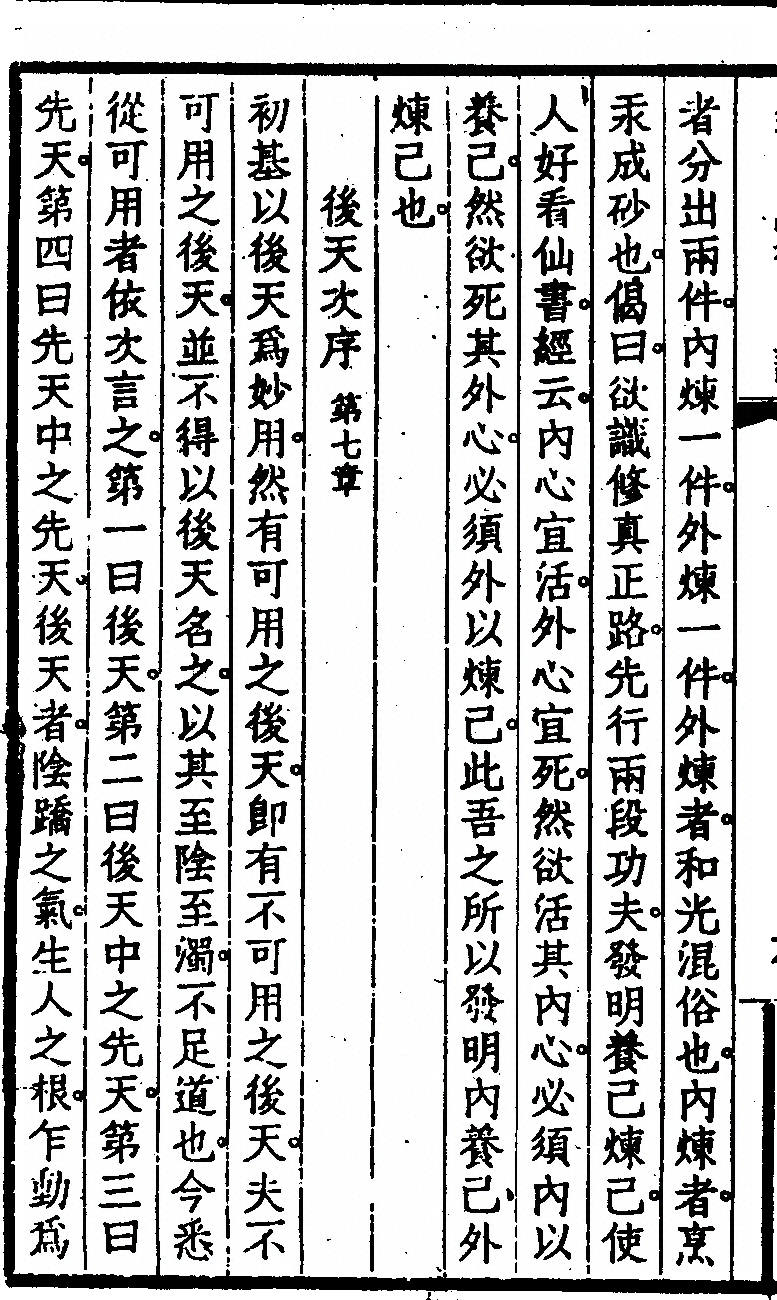 者分出兩件。內煉一件。外煉一件。外煉者。和光混俗也。內煉者。烹
汞成砂也。偈曰。欲識修真正路。先行兩段功夫。發明養己煉己。使
人好看仙書。經云。內心宜活。外心宜死。然欲活其內心。必須內以
養己。然欲死其外心。必須外以煉己。此吾之所以發明內養己、外
煉己也。
後天次序 第七章
初基以後天爲妙用。然有可用之後天。卽有不可用之後天。夫不
可用之後天。並不得以後天名之。以其至陰至濁。不足道也。今悉
從可用者依次言之。第一曰後天。第二曰後天中之先天。第三曰
先天。第四曰先天中之先天。後天者。陰蹻之氣。生人之根。乍動爲